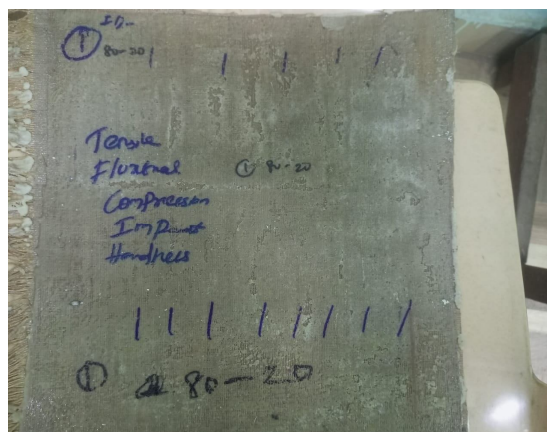 ① 80-20
Tensile
Fluxtural
① 80-20
Compression
Impact
Hardness
① 80-20